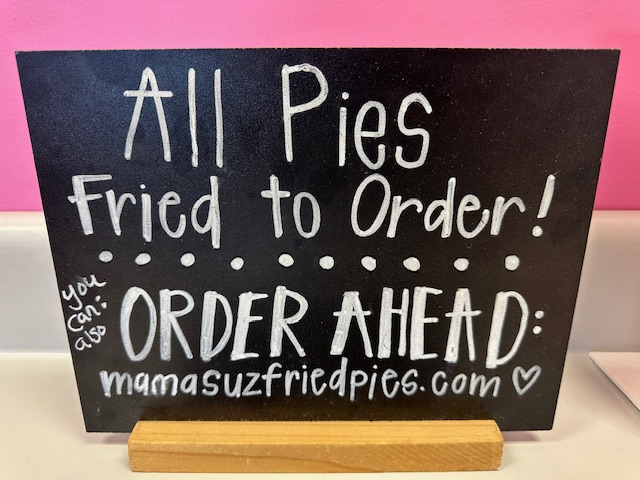 All Pies
Fried to Order!
you
can:
also
ORDER AHEAD:
mamasuzfriedpies.com ♡